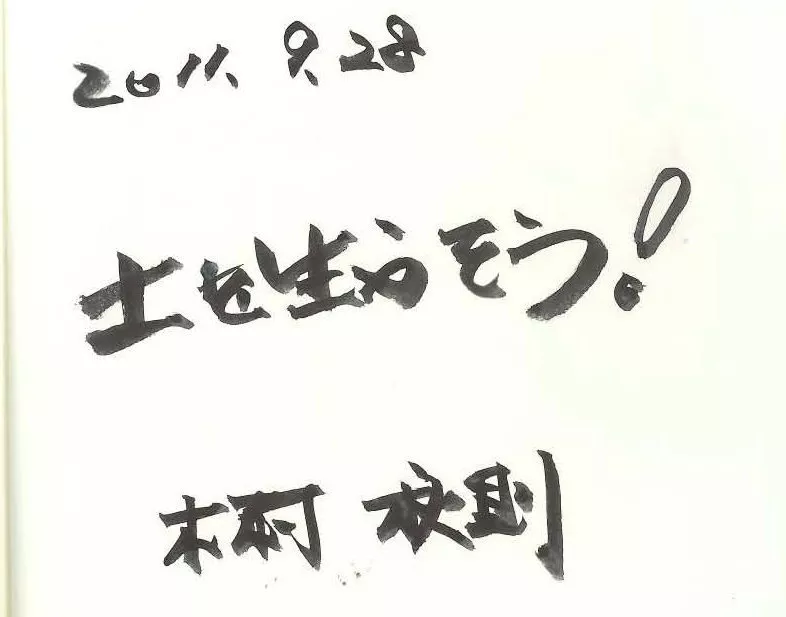 2011. 9. 28
土を生かそう!
木村 秋則